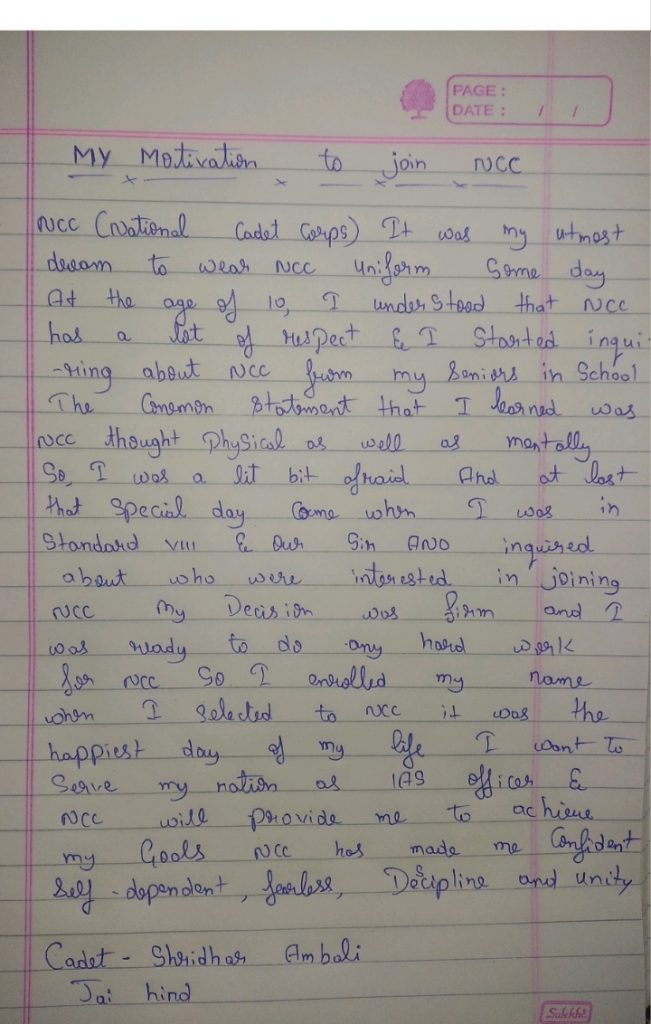 PAGE :
DATE : / /
MY Motivation to join NCC
NCC (National Cadet Corps) It was my utmost
dream to wear NCC uniform Some day
At the age of 10, I understood that NCC
has a lot of resPect & I Started inqui-
-ring about NCC from my Seniors in School
The Conemon Statement that I learned was
NCC thought Physical as well as mentally
So, I was a lit bit afraid And at last
that special day Came when I was in
Standard VIII & Our Sir ANO inquired
about who were interested in joining
NCC My Decision was firm and I
was ready to do any hard work
for NCC So I enrolled my name
when I Selected to NCC it was the
happiest day of my life I want To
Serve my nation as IAS officer &
NCC will provide me to achieve
my Goals NCC has made me Confident
Self-dependent, fearless, Descipline and unity
Cadet - Shridhar Ambali
Jai hind
Sulekha